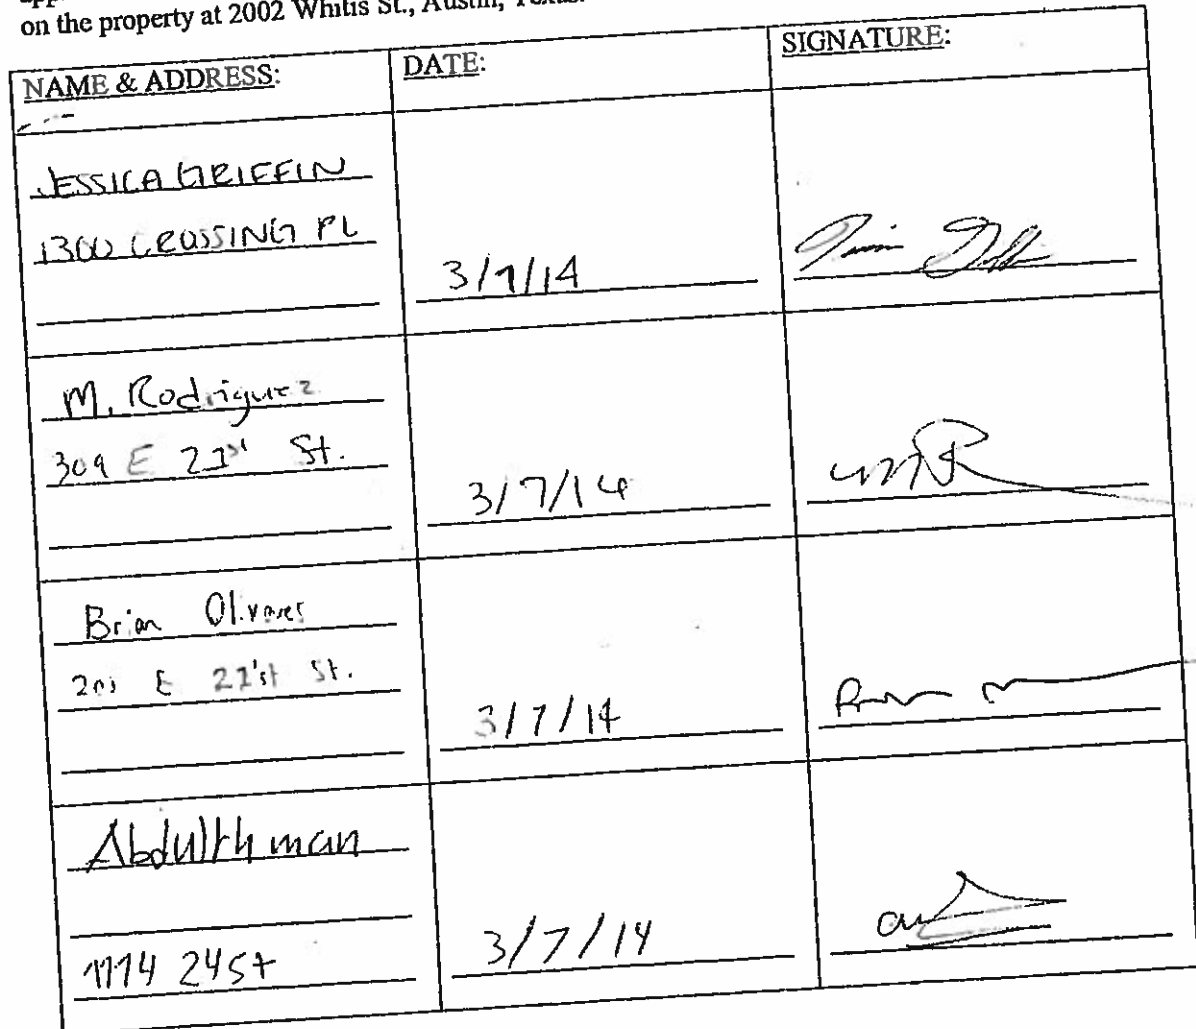 on the property at 2002 Whitis St., Austin, Texas.
NAME & ADDRESS: DATE: SIGNATURE:
JESSICA GRIFFIN
1300 CROSSING PL
3/7/14
M. Rodriguez
309 E 21st St.
3/7/14
Brian Olivares
E 21'st St.
3/7/14
3/7/14
24St